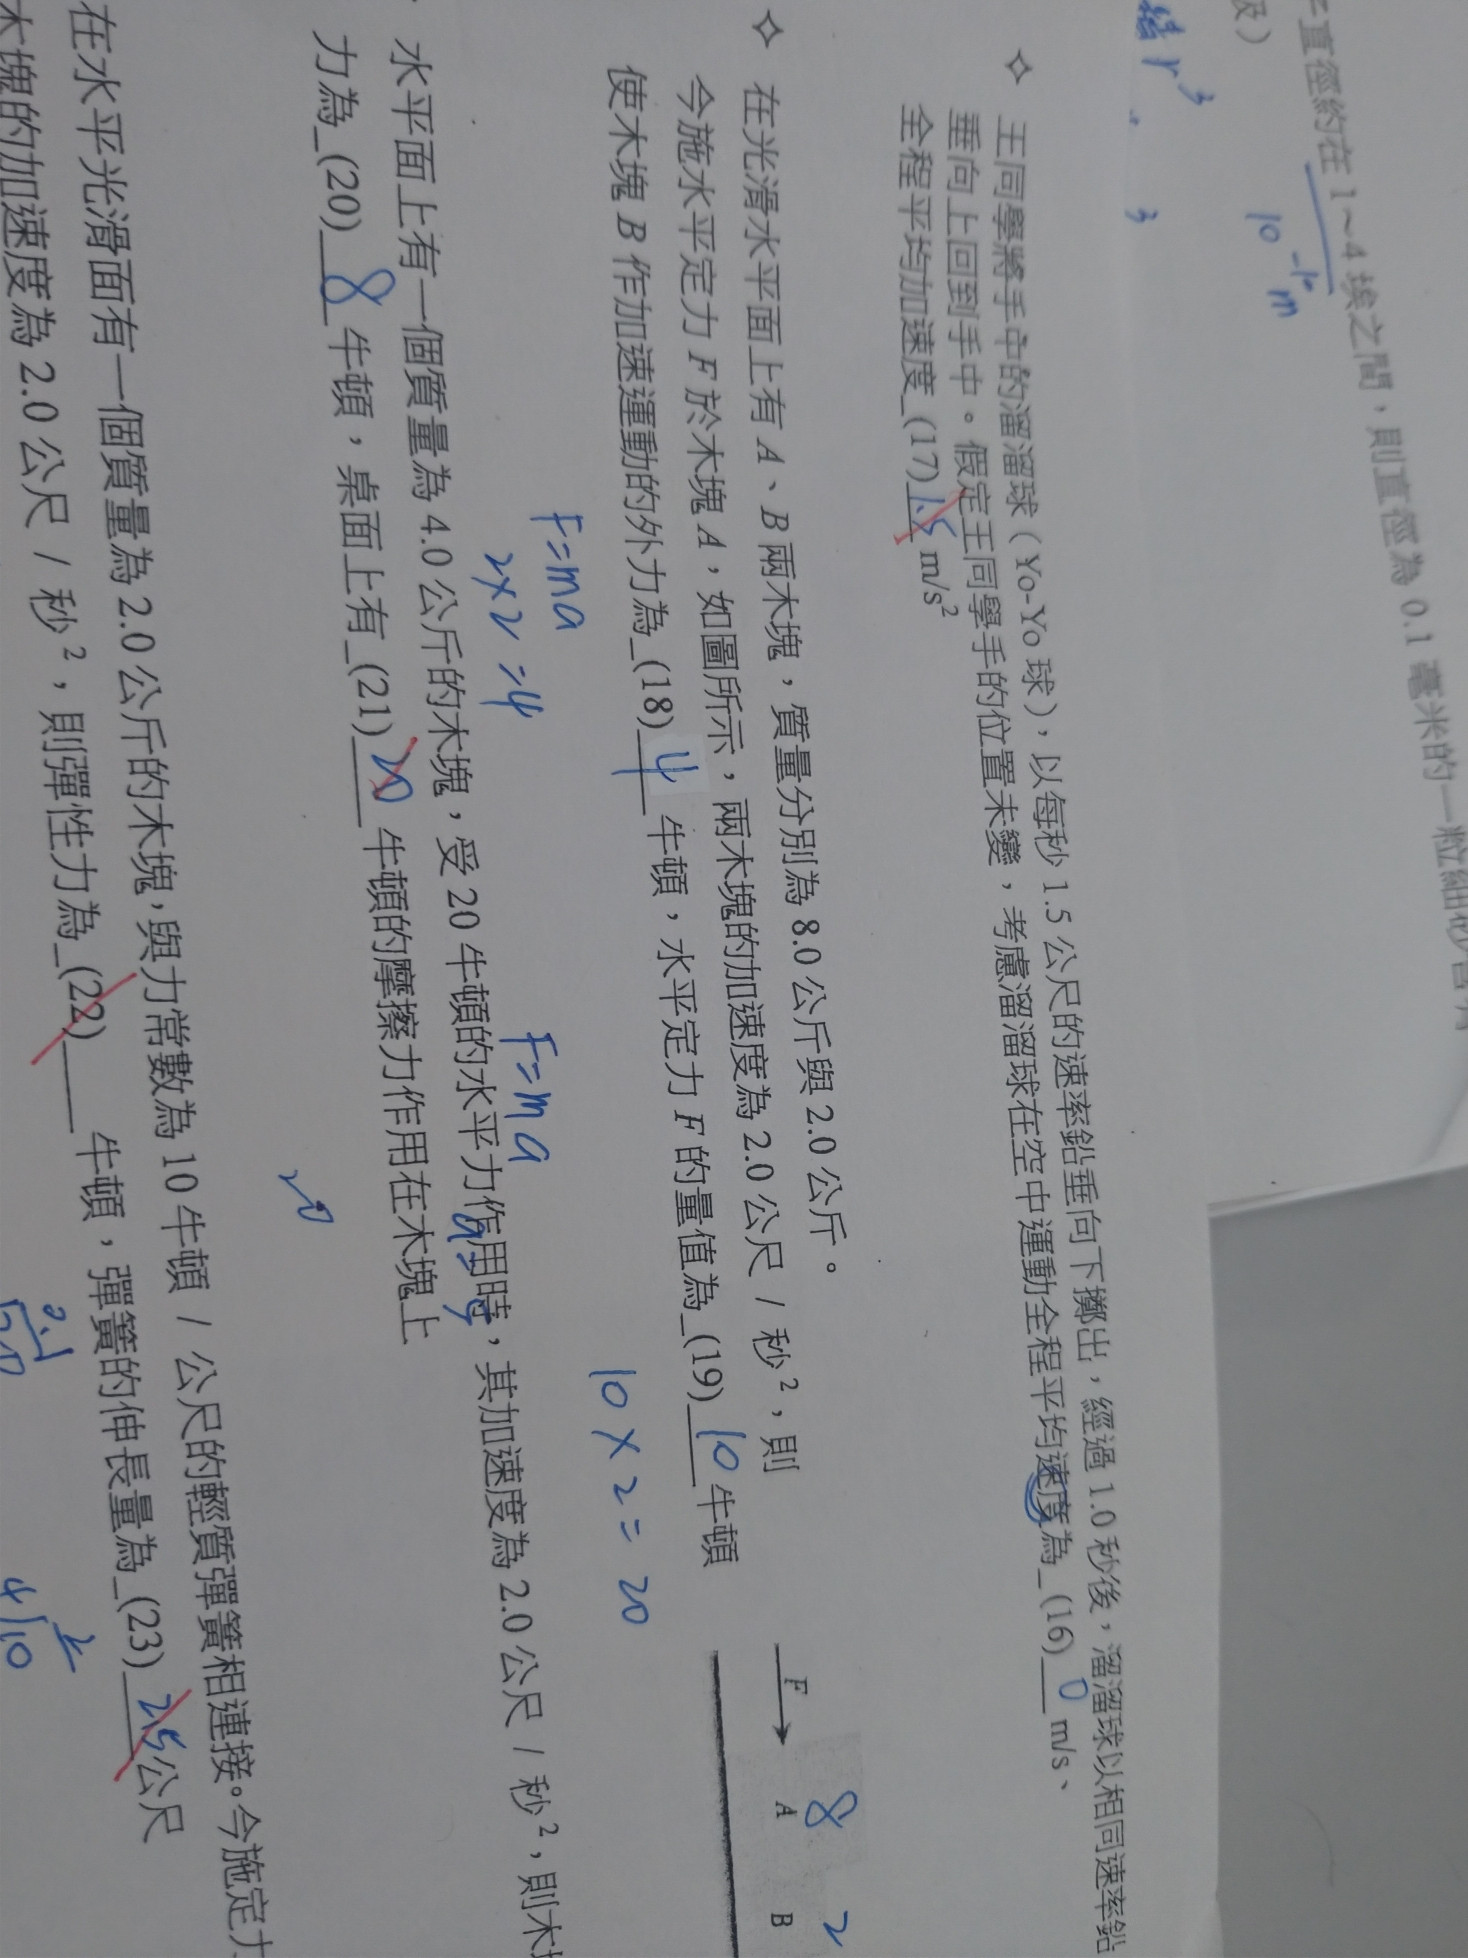 直徑約在 1~4 埃之間，則直徑為 0.1 毫米的一粒細沙
10⁻¹⁰ m
及）
r³
3
✧ 王同學將手中的溜溜球（Yo-Yo 球），以每秒 1.5 公尺的速率鉛垂向下擲出，經過 1.0 秒後，溜溜球以相同速率鉛
垂向上回到手中。假定王同學手的位置未變，考慮溜溜球在空中運動全程平均速度為_(16) 0 m/s、
全程平均加速度_(17) 1.5 m/s²
✧ 在光滑水平面上有 A、B 兩木塊，質量分別為 8.0 公斤與 2.0 公斤。
今施水平定力 F 於木塊 A，如圖所示，兩木塊的加速度為 2.0 公尺 / 秒²，則
使木塊 B 作加速運動的外力為_(18) 4 牛頓，水平定力 F 的量值為_(19) 10 牛頓
F
A
B
8
2
F=ma
2×2=4
10×2=20
F=ma
水平面上有一個質量為 4.0 公斤的木塊，受 20 牛頓的水平力作用時，其加速度為 2.0 公尺 / 秒²，則木
力為_(20) 8 牛頓，桌面上有_(21) 20 牛頓的摩擦力作用在木塊上
20
在水平光滑面有一個質量為 2.0 公斤的木塊，與力常數為 10 牛頓 / 公尺的輕質彈簧相連接。今施定力
木塊的加速度為 2.0 公尺 / 秒²，則彈性力為_(22) 牛頓，彈簧的伸長量為_(23) 2.5 公尺
2
4 10